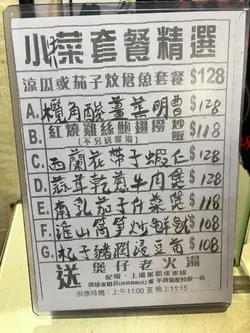 小菜套餐精選
涼瓜或茄子炆倉魚套餐 $128
A. 欖角酸薑蒸明曹 $128
B. 紅燒雞絲鮑翅撈炒飯 $118
(不另送老湯)
C. 西蘭花帶子蝦仁 $128
D. 蒜茸乾煎牛肉煲 $128
E. 南乳茄子什菜煲 $118
F. 淮山 炒 $108
G. 杞子豬潤浸豆苗 $108
送 煲仔老火湯
配飯、上湯
供應時間：上午11:00 至 晚上11:15